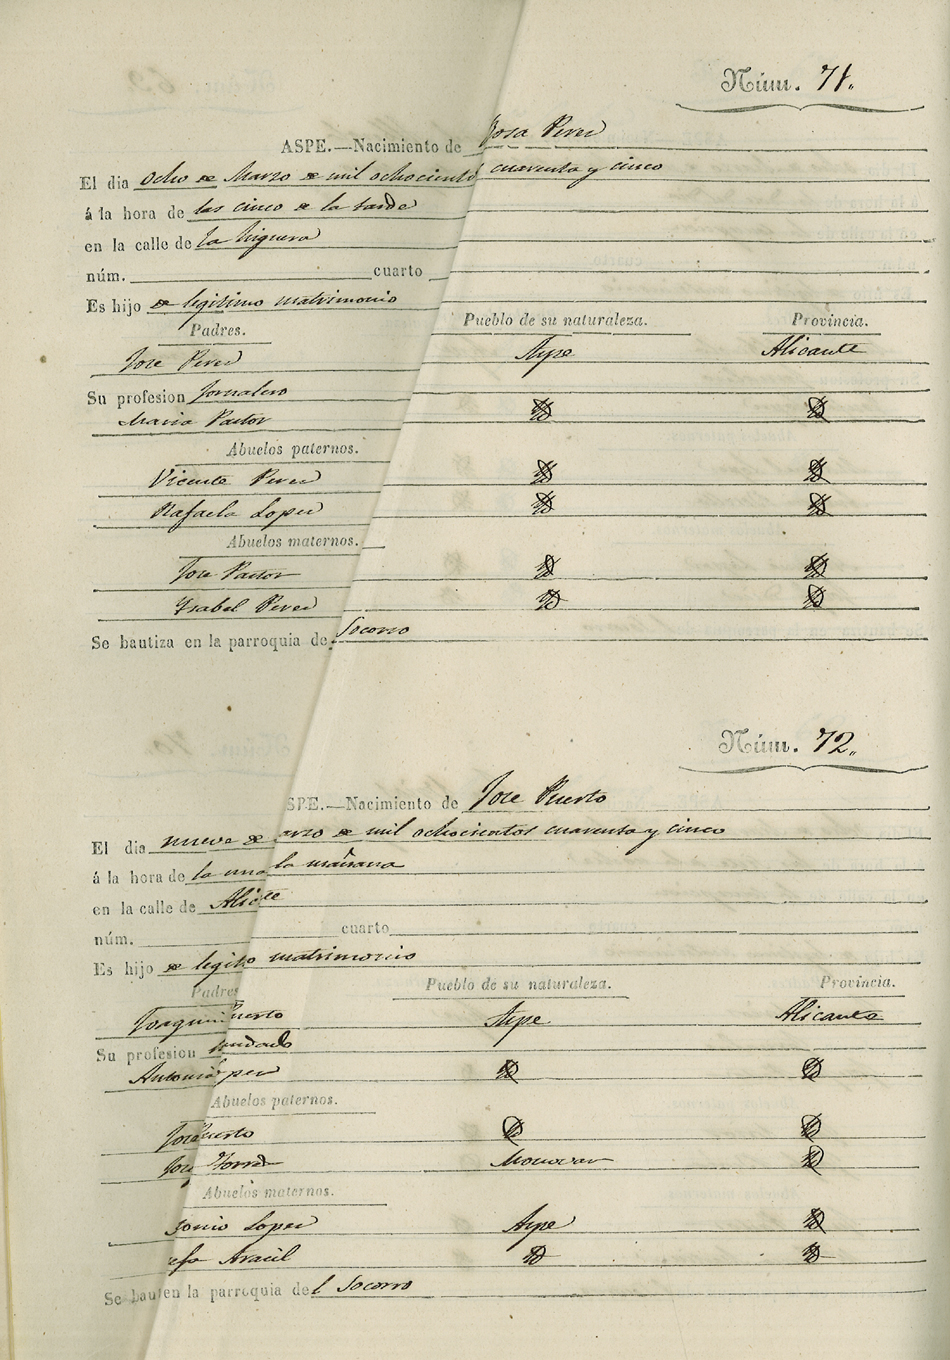 Núm. 71.
ASPE.—Nacimiento de Rosa Perez
El dia ocho de Marzo de mil ochociento cuarenta y cinco
á la hora de las cinco de la tarde
en la calle de la higuera
núm. cuarto
Es hijo de legitimo matrimonio
Padres. Pueblo de su naturaleza. Provincia.
Jose Perez Aspe Alicante
Su profesion Jornalero
Maria Pastor
Abuelos paternos.
Vicente Perez
Rafaela Lopez
Abuelos maternos.
Jose Pastor
Ysabel Perez
Se bautiza en la parroquia de Socorro
Núm. 72.
SPE.—Nacimiento de Jose Puerto
El dia nueve de arzo de mil ochocientos cuarenta y cinco
á la hora de la una la mañana
en la calle de
núm. cuarto
Es hijo de legito matrimonio
Padres Pueblo de su naturaleza. Provincia.
Joaquin uerto Aspe Alicante
Su profesion
Antonia pez
Abuelos paternos.
Jose uerto
Monovar
Abuelos maternos.
tonio Lopez Aspe
efa Aracil
Se baut en la parroquia del Socorro